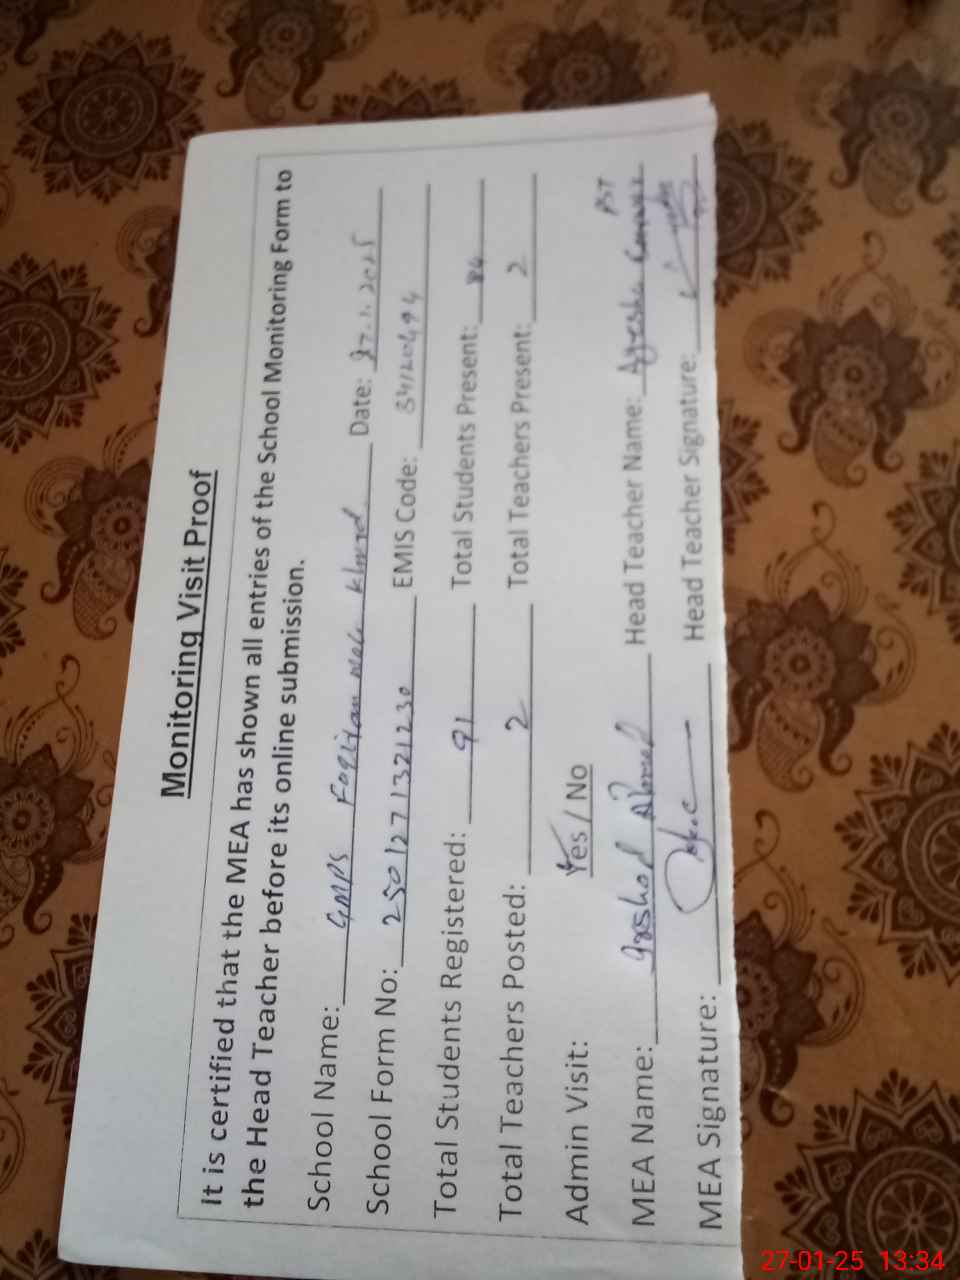 Monitoring Visit Proof
It is certified that the MEA has shown all entries of the School Monitoring Form to
the Head Teacher before its online submission.
School Name: GMPS Faqirian wala Khurd Date: 27.1.2025
School Form No: 2501271321230 EMIS Code: 34120494
Total Students Registered: 91 Total Students Present: 86
Total Teachers Posted: 2 Total Teachers Present: 2
Admin Visit: Yes / No
MEA Name: Arshad Ahmed Head Teacher Name: Ayesha PST
MEA Signature: Head Teacher Signature:
27-01-25 13:34